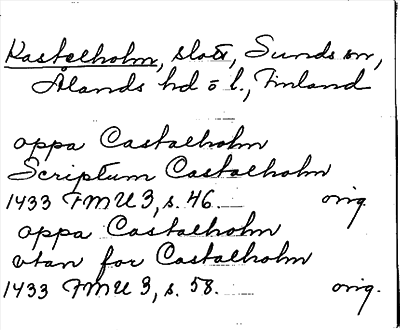 Kastelholm, slott, Sunds sn,
Ålands hd o l., Finland
oppa Castaelholm
Scriptum Castaelholm
1433 FMU 3, s. 46. orig.
oppa Castaelholm
vtan for Castaelholm
1433 FMU 3, s. 58. orig.